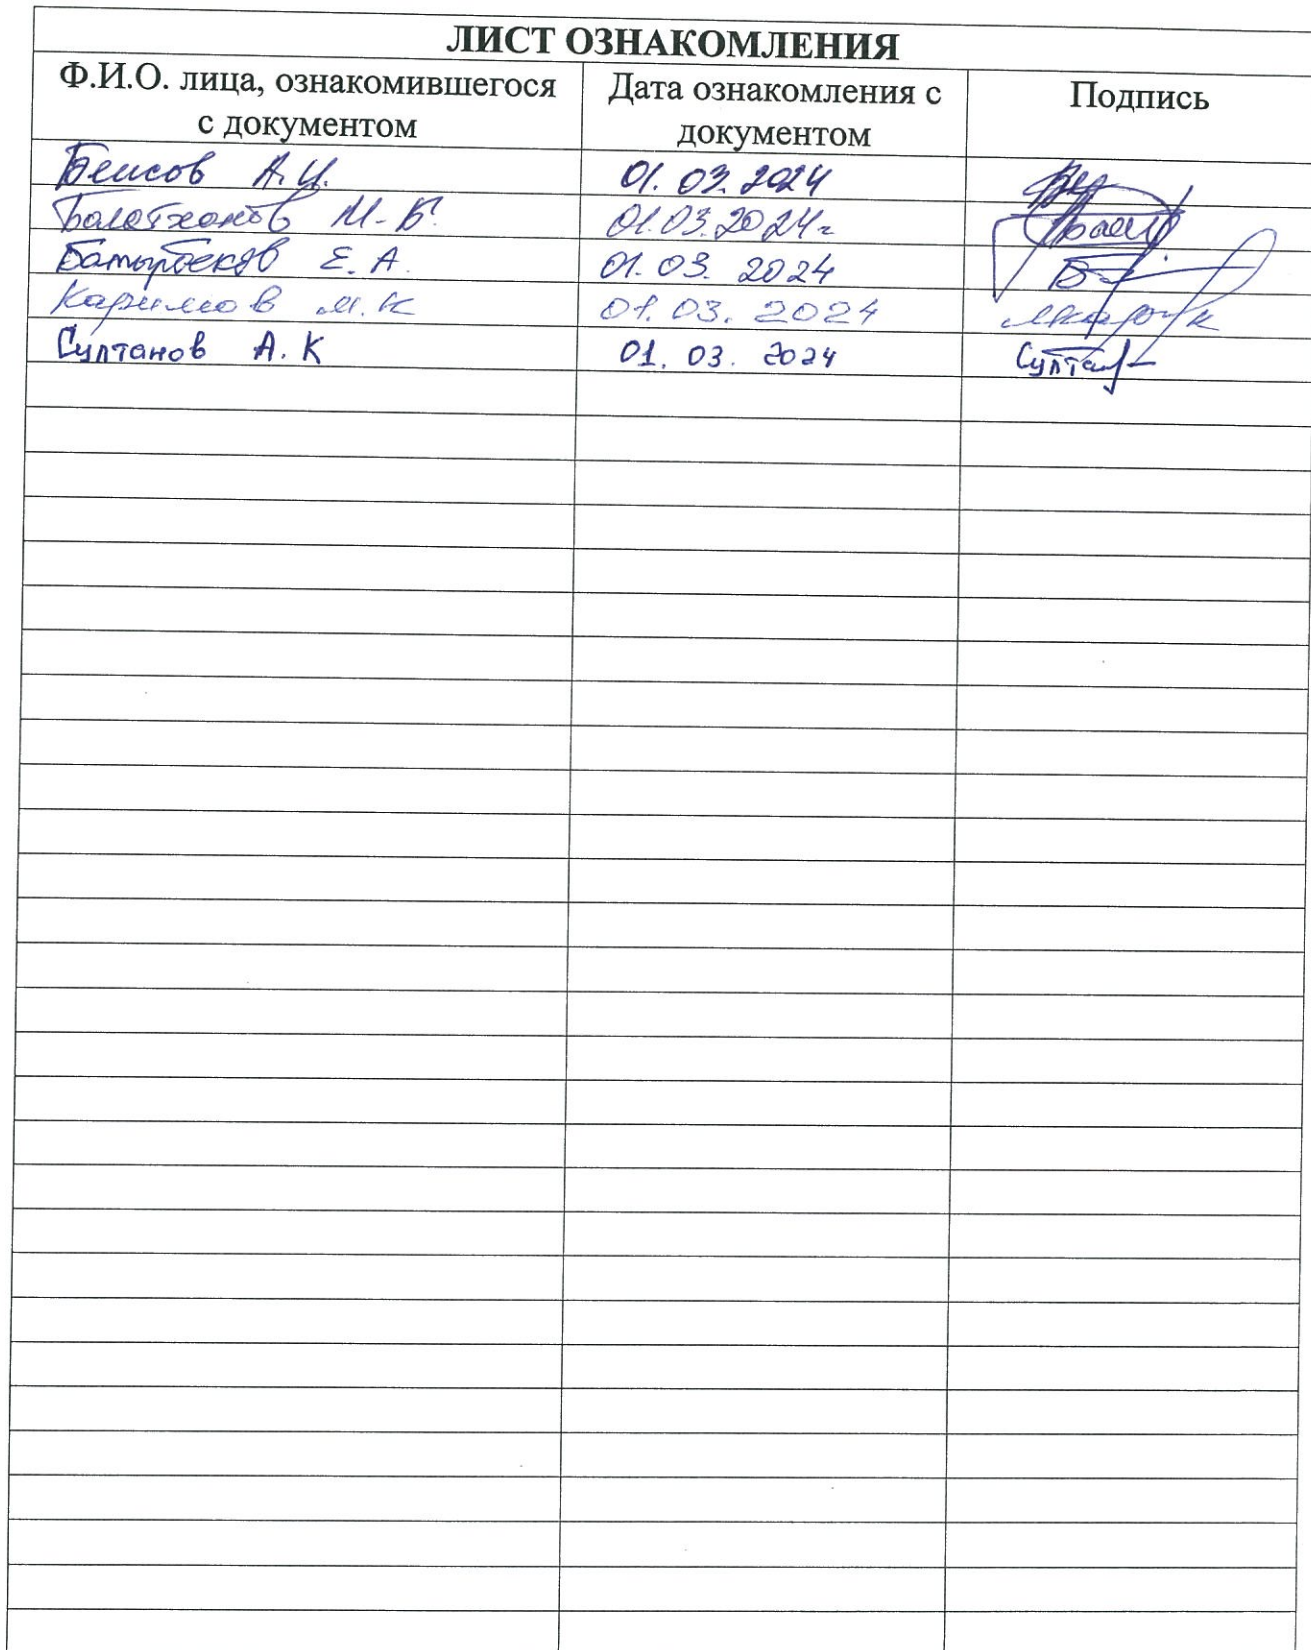 ЛИСТ ОЗНАКОМЛЕНИЯ
Ф.И.О. лица, ознакомившегося с документом Дата ознакомления с документом Подпись
Беисов А.И. 01.03.2024
Болатханов М-Б. 01.03.2024г
Батырбеков Е.А. 01.03.2024
Каримов М.К 01.03.2024
Султанов А.К 01.03.2024